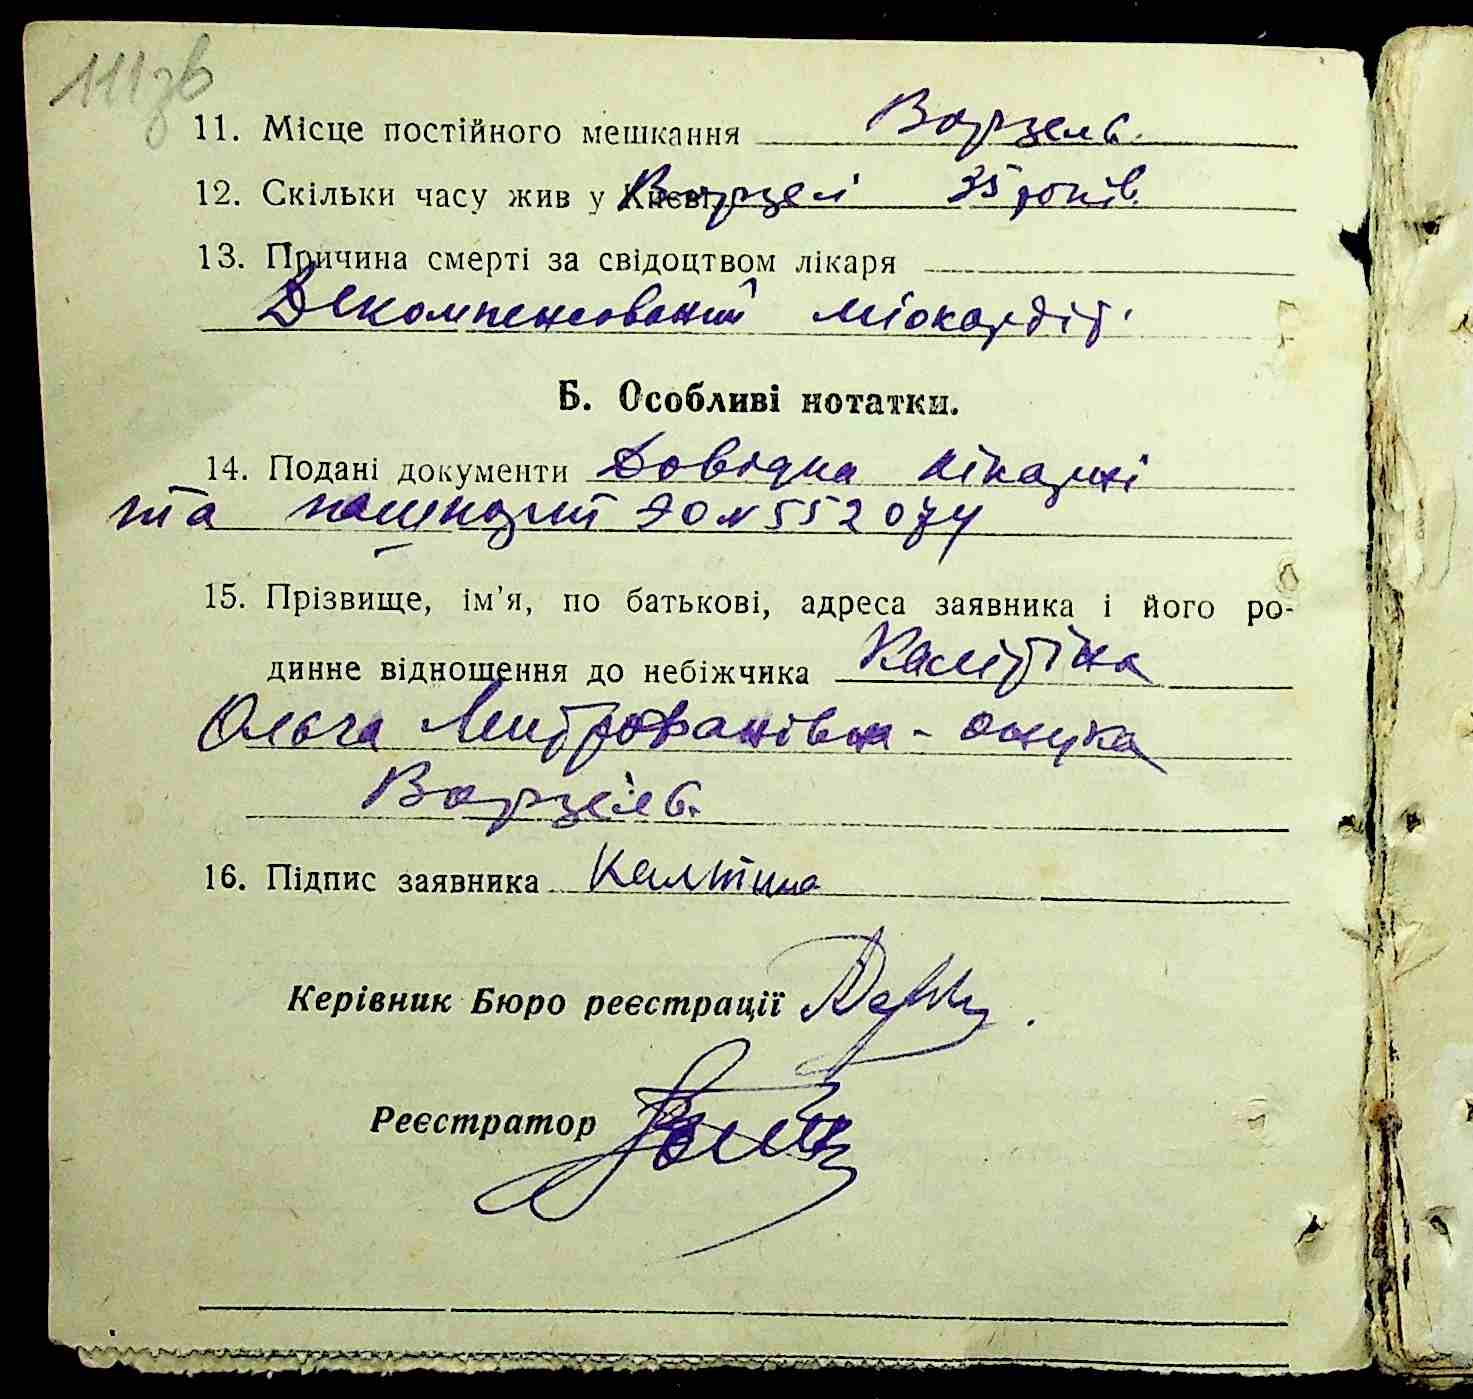 111зв
11. Місце постійного мешкання Ворзель.
12. Скільки часу жив у Києві Ворзелі 35 років.
13. Причина смерті за свідоцтвом лікаря
Декомпенсований міокардіт.
Б. Особливі нотатки.
14. Подані документи Довідка лікарні
та пашпорт № 552074
15. Прізвище, ім'я, по батькові, адреса заявника і його ро-
динне відношення до небіжчика Калітіна
Ольга Митрофанівна - онука
Ворзель.
16. Підпис заявника Калтина
Керівник Бюро реєстрації
Реєстратор